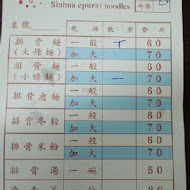 Sinhua epurai noodles
外帶
桌號
規格 數量 費用
排骨麵 一般 60
(大條麵) 加大 70
排骨麵 一般 60
(小條麵) 加大 一 70
排骨意麵 一般 60
加大 70
排骨冬粉 一般 60
加大 70
排骨米粉 一般 60
加大 70
排骨湯 一碗 50